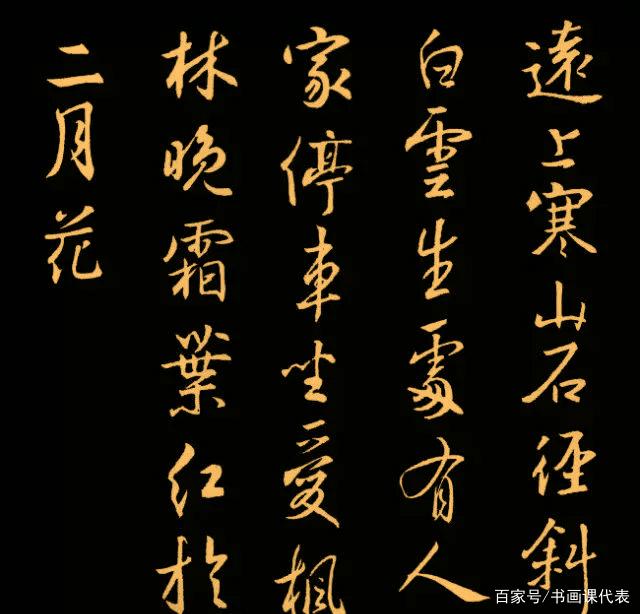 遠上寒山石徑斜
白雲生處有人
家停車坐愛楓
林晚霜葉紅於
二月花
百家号/书画课代表